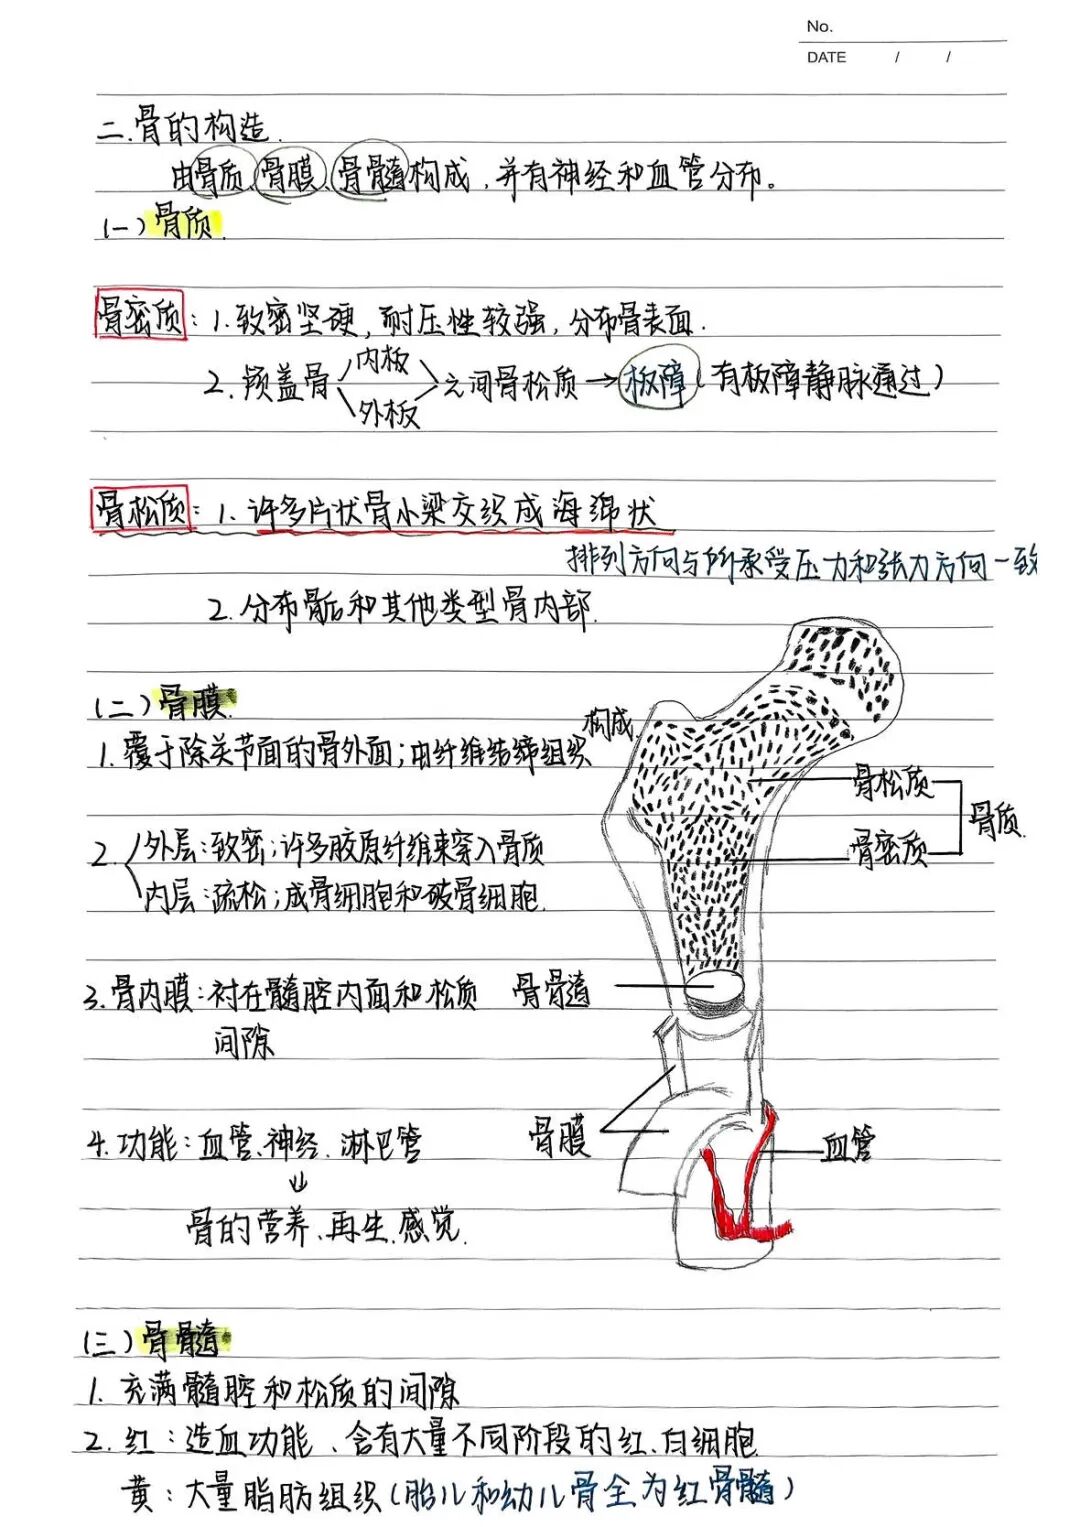 No.
DATE / /
二.骨的构造.
由骨质、骨膜、骨髓构成,并有神经和血管分布。
(一)骨质.
骨密质:1.致密坚硬,耐压性较强,分布骨表面.
内板
2.颅盖骨 之间骨松质→板障(有板障静脉通过)
外板
骨松质:1.许多片状骨小梁交织成海绵状
排列方向与所承受压力和张力方向一致
2.分布骨后和其他类型骨内部.
(二)骨膜.
1.覆于除关节面的骨外面;由纤维结缔组织构成.
骨松质
骨质.
骨密质
2.外层:致密;许多胶原纤维束穿入骨质
内层:疏松;成骨细胞和破骨细胞.
3.骨内膜:衬在髓腔内面和松质
间隙
骨骨髓
4.功能:血管、神经.淋巴管
骨膜
血管
↓
骨的营养、再生.感觉.
(三)骨髓
1.充满髓腔和松质的间隙
2.红:造血功能、含有大量不同阶段的红、白细胞
黄:大量脂肪组织(胎儿和幼儿骨全为红骨髓)